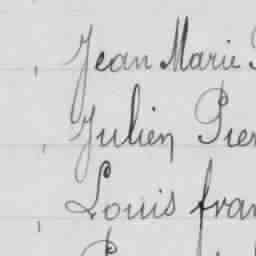 Jean Marie
Julien Pier
Louis fran